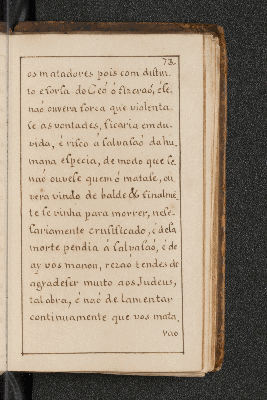 73.
os matadores pois com distin,
to e forsa do Ceó ó fizeraó, é se
naó ouvera forca que violenta,
se as vontades, ficaria em du,
vida, é risco á salvasaó da hu,
mana especia, de modo que se
naó ouvese quem ó matase, ou
vera vindo de balde & finalmẽ
te se vinha para morrer, nese,
sariamente crusificado, é desa
morte pendia á salvasaó, é de
ay vos manou, rezaó tendes de
agradeser muito aos Judeus,
tal obra, é naó de lamentar
continuamente que vos mata,
vao